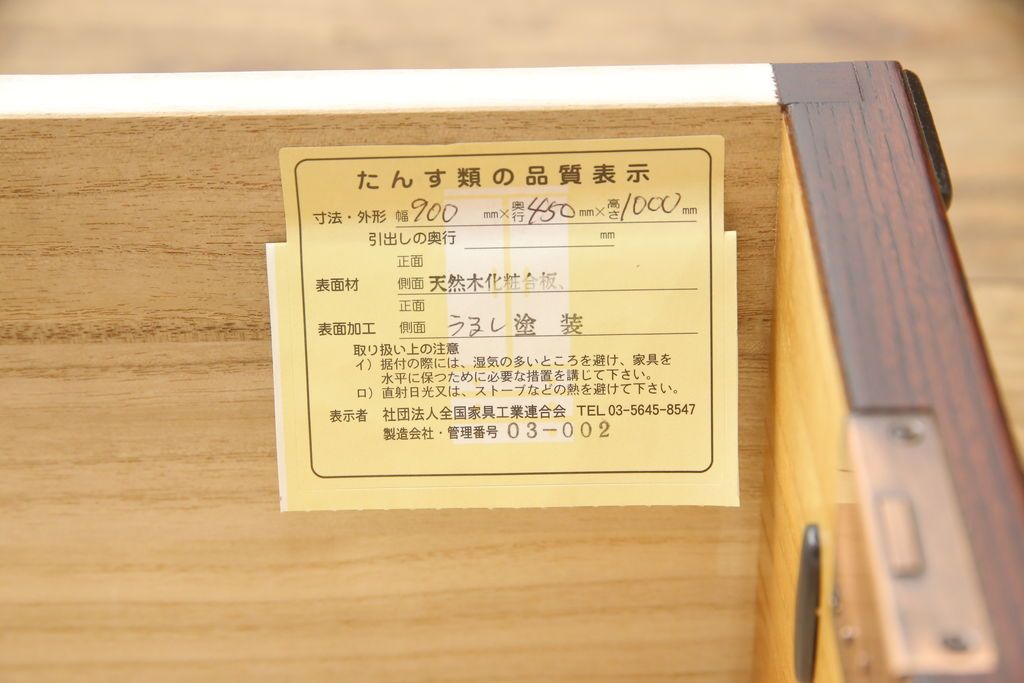 たんす類の品質表示
寸法・外形 幅900 mm×奥行450mm×高さ1000mm
引出しの奥行 mm
正面
表面材 側面 天然木化粧合板、
正面
表面加工 側面 うるし塗装
取り扱い上の注意
イ）据付の際には、湿気の多いところを避け、家具を
水平に保つために必要な措置を講じて下さい。
ロ）直射日光又は、ストーブなどの熱を避けて下さい。
表示者 社団法人全国家具工業連合会 TEL 03-5645-8547
製造会社・管理番号 03-002